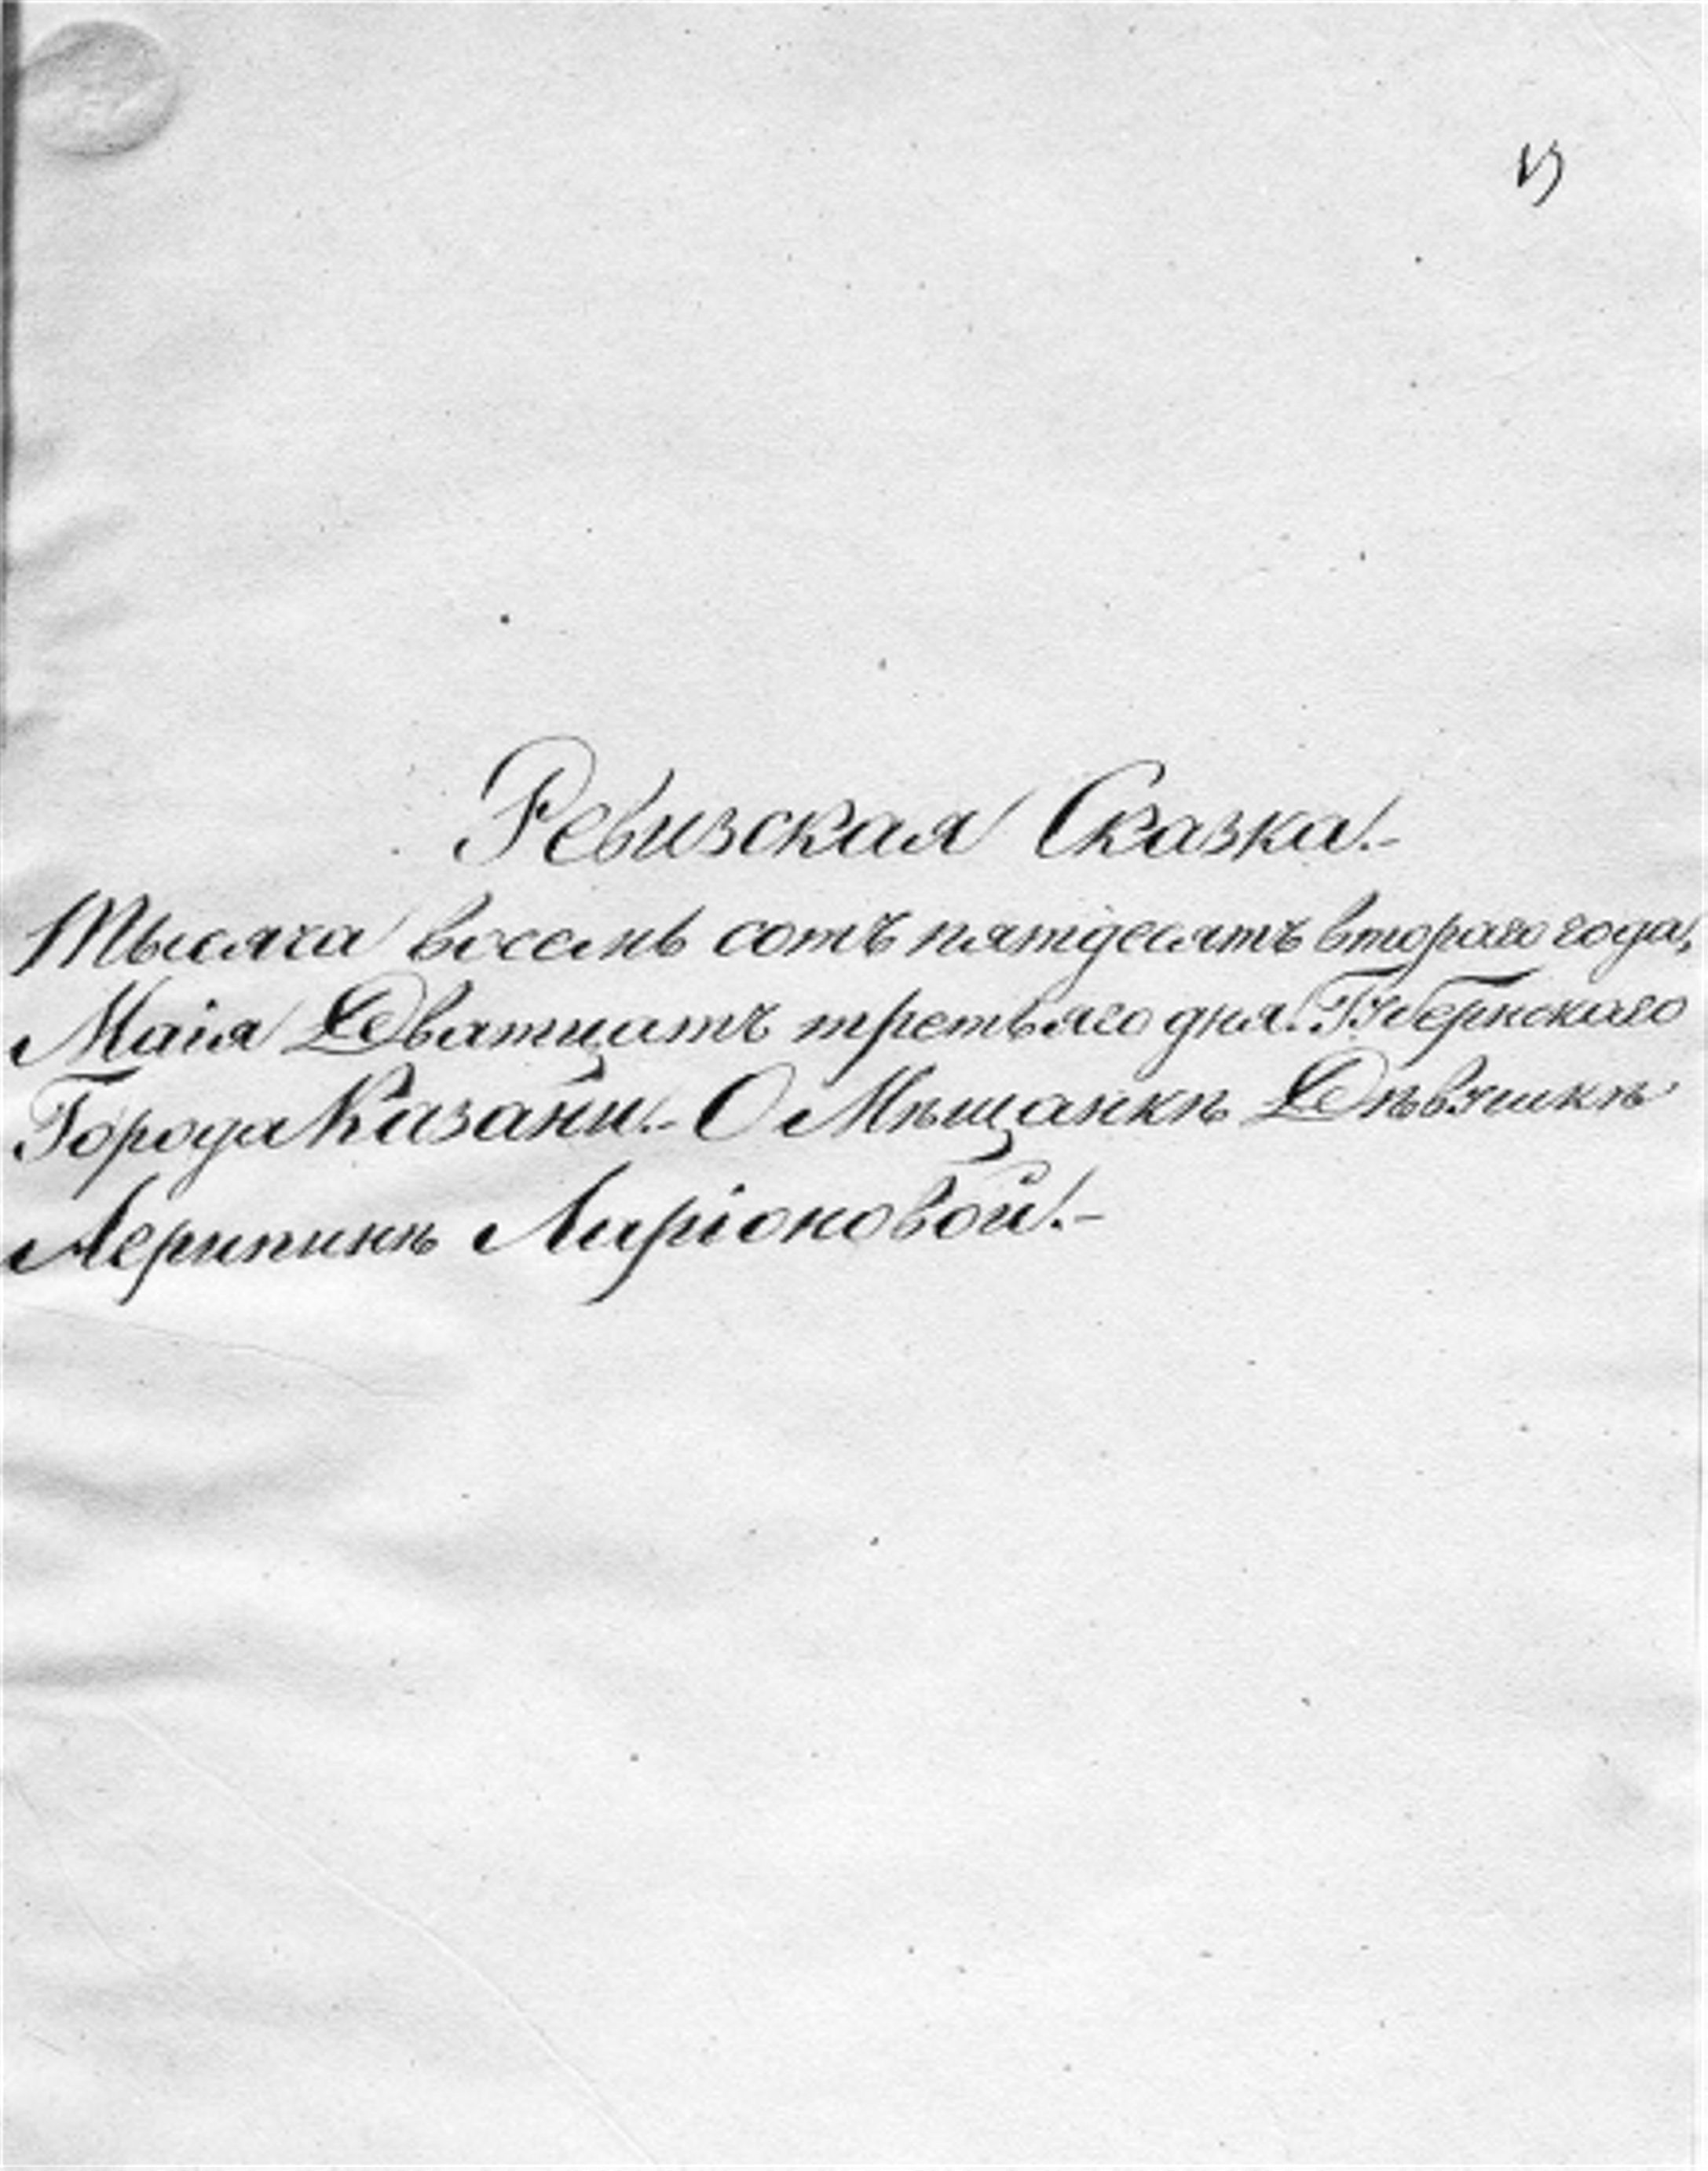 Ревизская Сказка.-
Тысяча восемь сотъ пятдесятъ втораго года,
Маія Дватцать третьяго дня. Губернскаго
Города Казани.- О Мѣщанкѣ Дѣвушкѣ
Ларіоновой.-